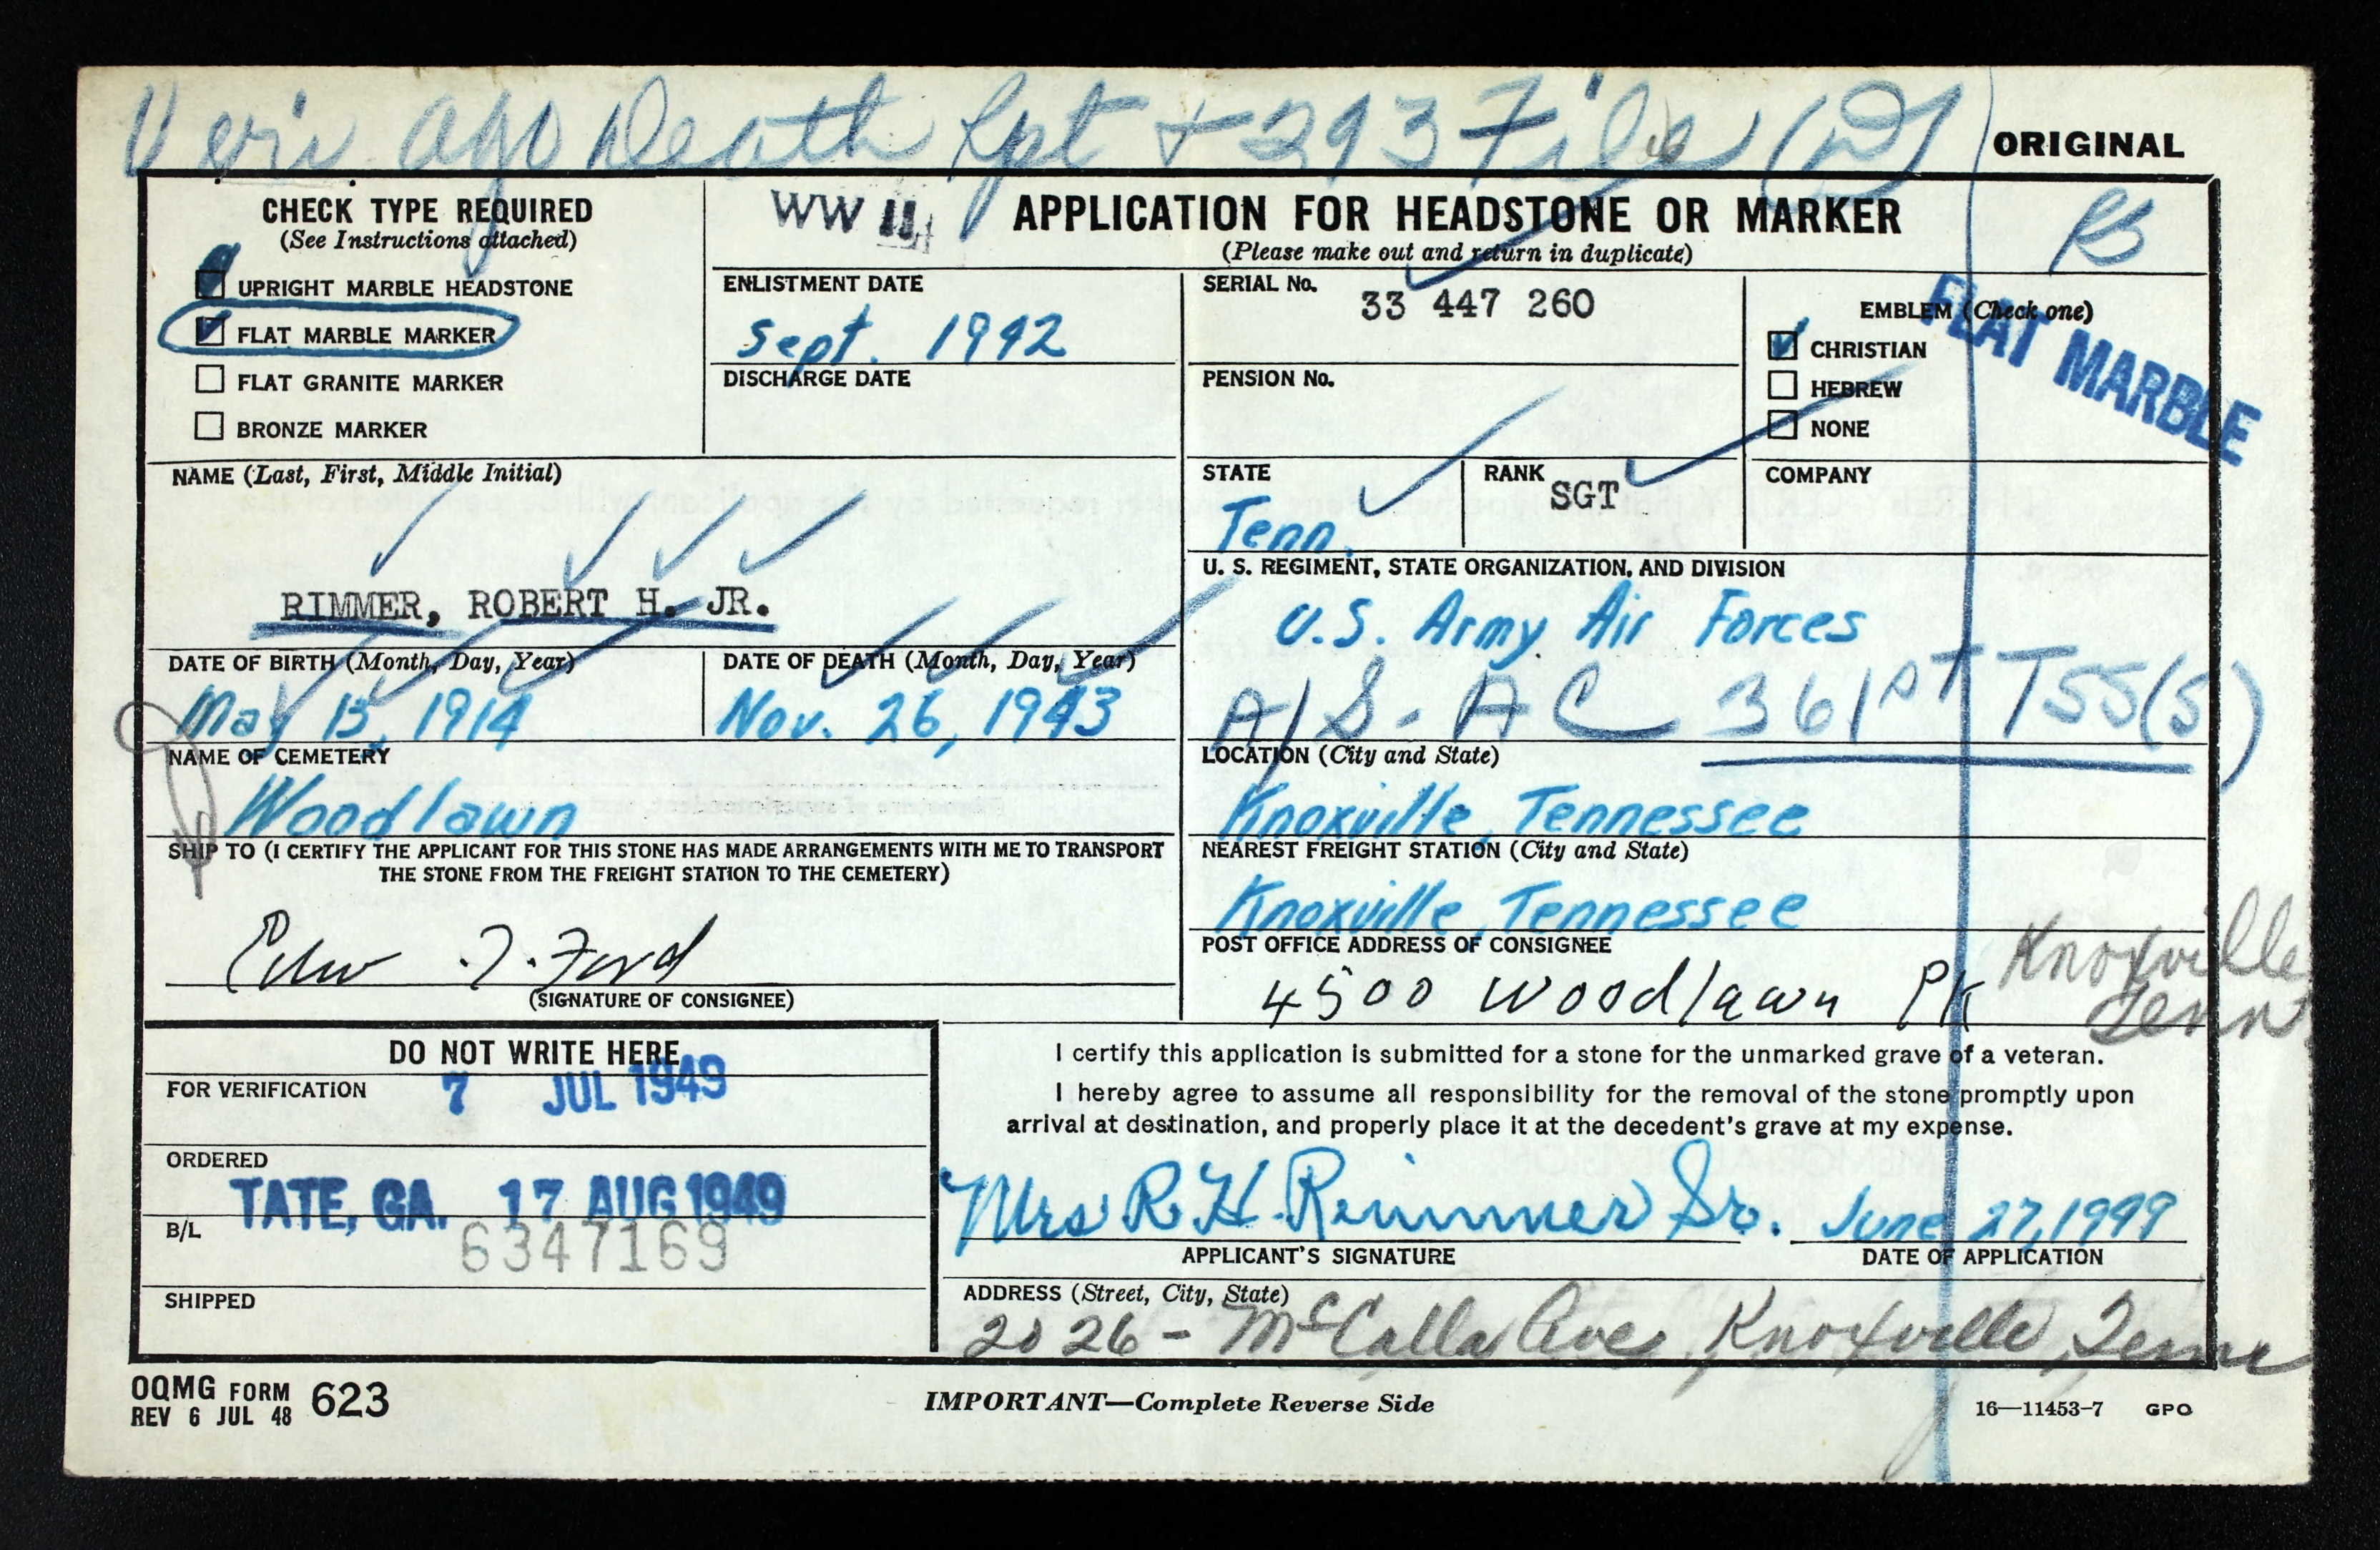 Veri. AGO Death Rpt + 293 File (D)
ORIGINAL
CHECK TYPE REQUIRED
(See Instructions attached)
UPRIGHT MARBLE HEADSTONE
FLAT MARBLE MARKER
FLAT GRANITE MARKER
BRONZE MARKER
WW II
APPLICATION FOR HEADSTONE OR MARKER
(Please make out and return in duplicate)
ENLISTMENT DATE
Sept. 1942
DISCHARGE DATE
SERIAL No.
33 447 260
PENSION No.
EMBLEM (Check one)
CHRISTIAN
HEBREW
NONE
FLAT MARBLE
NAME (Last, First, Middle Initial)
RIMMER, ROBERT H. JR.
STATE
Tenn.
RANK
SGT
COMPANY
U. S. REGIMENT, STATE ORGANIZATION, AND DIVISION
U.S. Army Air Forces
A/S - AC 361st TSS(S)
DATE OF BIRTH (Month, Day, Year)
May 13, 1914
DATE OF DEATH (Month, Day, Year)
Nov. 26, 1943
NAME OF CEMETERY
Woodlawn
LOCATION (City and State)
Knoxville, Tennessee
SHIP TO (I CERTIFY THE APPLICANT FOR THIS STONE HAS MADE ARRANGEMENTS WITH ME TO TRANSPORT
THE STONE FROM THE FREIGHT STATION TO THE CEMETERY)
NEAREST FREIGHT STATION (City and State)
Knoxville, Tennessee
Ford
(SIGNATURE OF CONSIGNEE)
POST OFFICE ADDRESS OF CONSIGNEE
4500 Woodlawn PK
Knoxville
Tenn
DO NOT WRITE HERE
FOR VERIFICATION
7 JUL 1949
ORDERED
TATE, GA. 17 AUG 1949
B/L
6347169
SHIPPED
I certify this application is submitted for a stone for the unmarked grave of a veteran.
I hereby agree to assume all responsibility for the removal of the stone promptly upon
arrival at destination, and properly place it at the decedent's grave at my expense.
Mrs R. H. Rimmer Sr.
June 27, 1949
APPLICANT'S SIGNATURE
DATE OF APPLICATION
ADDRESS (Street, City, State)
2026 - McCalla Ave, Knoxville, Tenn
OQMG FORM 623
REV 6 JUL 48
IMPORTANT—Complete Reverse Side
16—11453-7 GPO